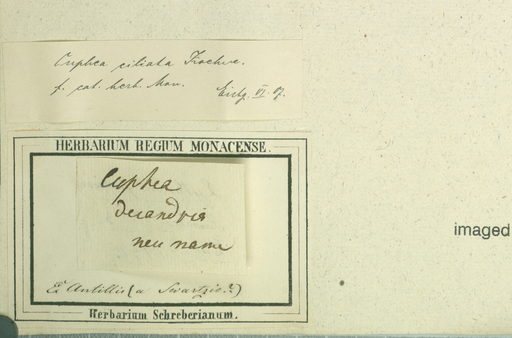 Cuphea ciliata Koehne.
f. cat. herb. Mon.
Eistg. VI. 07.
HERBARIUM REGIUM MONACENSE.
Cuphea
decandria
neu name
Ex Antillis (a Swartzio?)
Herbarium Schreberianum.
imaged